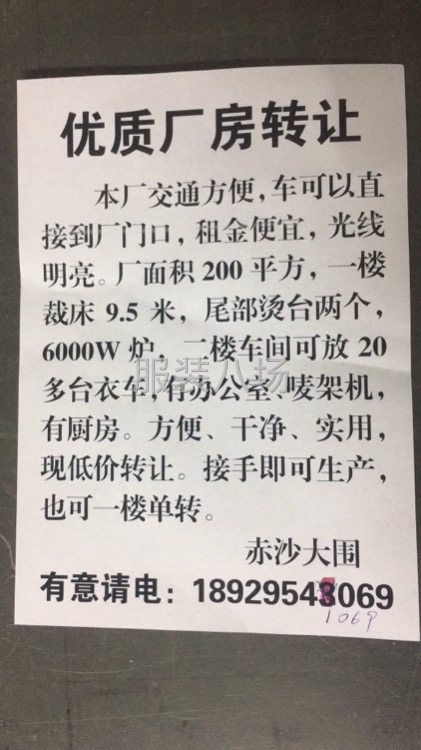 优质厂房转让
本厂交通方便,车可以直
接到厂门口,租金便宜,光线
明亮。厂面积200平方,一楼
裁床9.5米,尾部烫台两个,
6000W炉,二楼车间可放20
多台衣车,有办公室、唛架机,
有厨房。方便、干净、实用,
现低价转让。接手即可生产,
也可一楼单转。
赤沙大围
有意请电:18929543069
1069
服装八场